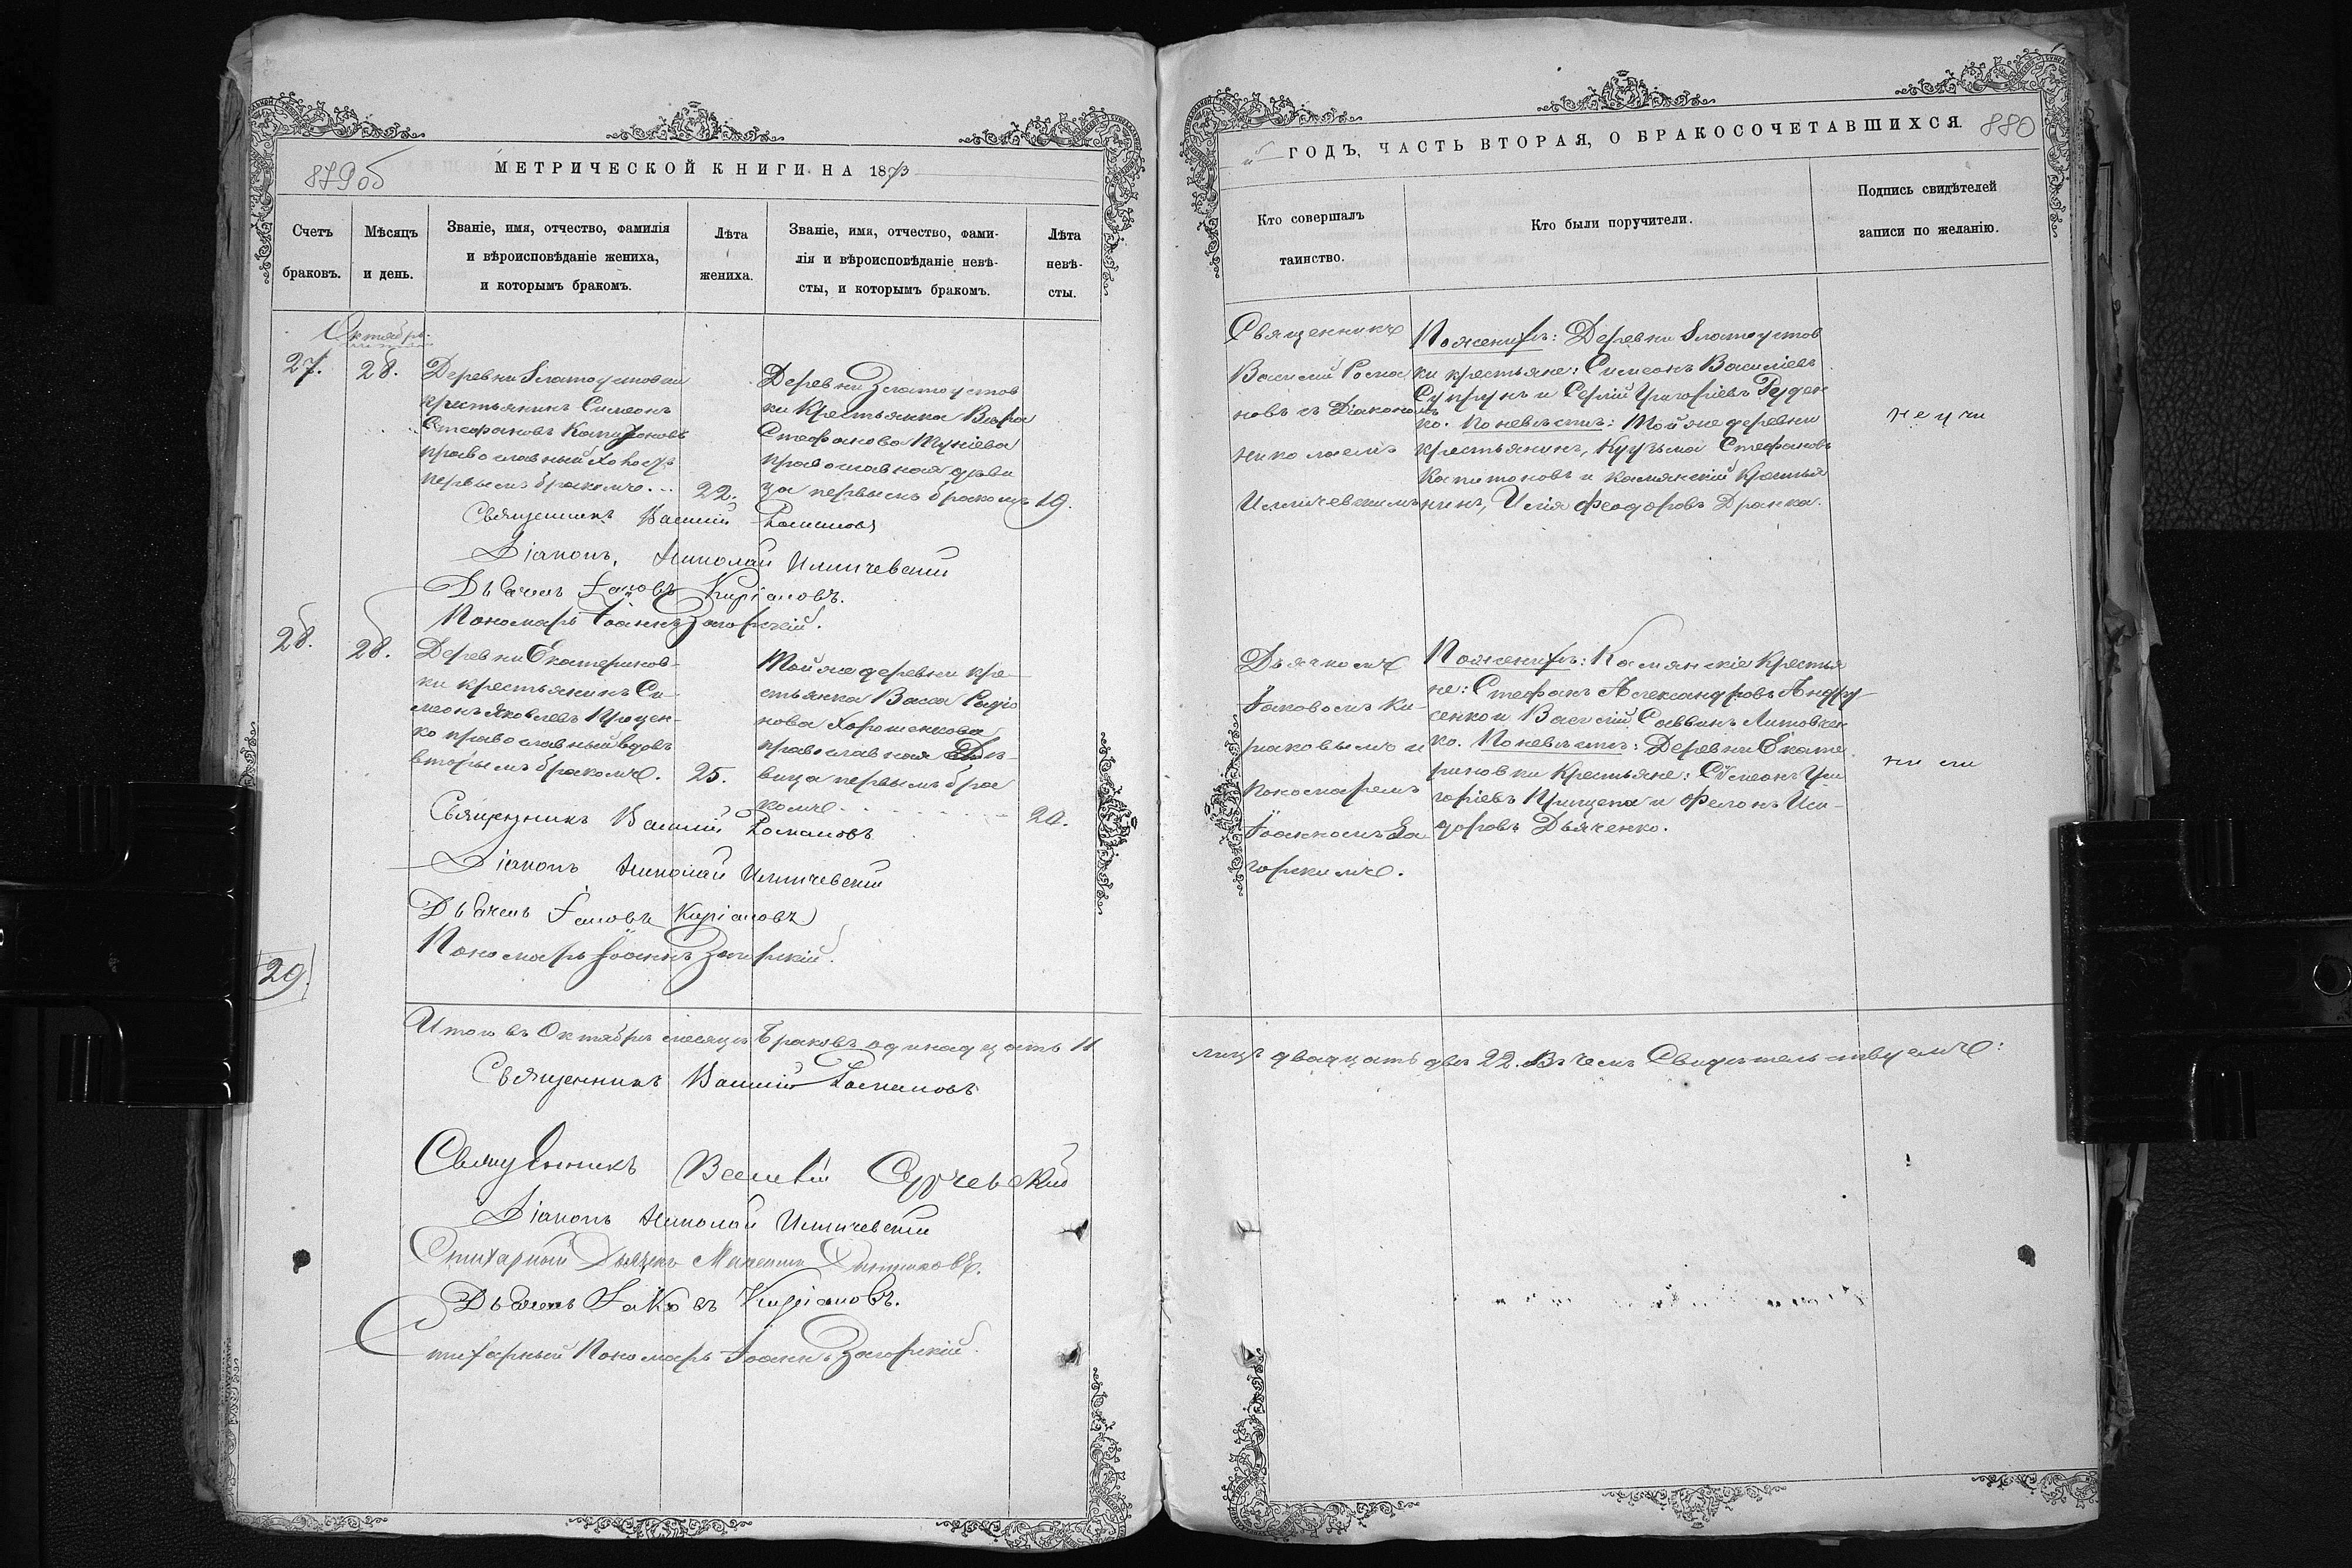 879об
МЕТРИЧЕСКОЙ КНИГИ НА 1873
Счетъ
браковъ.
Мѣсяцъ
и день.
Званіе, имя, отчество, фамилія
и вѣроисповѣданіе жениха,
и которымъ бракомъ.
Лѣта
жениха.
Званіе, имя, отчество, фами-
лія и вѣроисповѣданіе невѣ-
сты, и которымъ бракомъ.
Лѣта
невѣ-
сты.
Октябрь.
27.
28.
Деревни Златоустовки
крестьянинъ Симеонъ
Стефановъ Капитоновъ
православный холостъ
первымъ бракомъ...
22.
Деревни Златоустов
ки Крестьянка Вѣра
Стефанова
православная дѣви
ца первымъ бракомъ
19.
Священникъ Василій Романовъ
Діаконъ, Николай Илличевскій
Дьячекъ Іаковъ Киріаковъ.
Пономарь Іоаннъ Загорскій.
28.
28.
Деревни Екатеринов-
ки крестьянинъ Си-
меонъ Яковлевъ Процен-
ко православный вдовъ
вторымъ бракомъ.
25.
Той же деревни кре
стьянка Васса Радіо
нова Хорошенкова
православная Дѣ-
вица первымъ бра
комъ
20.
Священникъ Василій Романовъ
Діаконъ Николай Илличевскій
Дьячекъ Іаковъ Киріаковъ
Пономарь Іоаннъ Загорскій.
29.
Итого въ Октябрѣ месяцѣ браковъ одинадцать 11
Священникъ Василій Романовъ
Священникъ Василій
Діаконъ Николай Илличевскій
Стихарный Дьячекъ
Дьячекъ Іаковъ Киріаковъ.
Стихарный Пономарь Іоаннъ Загорскій.
й ГОДЪ, ЧАСТЬ ВТОРАЯ, О БРАКОСОЧЕТАВШИХСЯ.
880
Кто совершалъ
таинство.
Кто были поручители.
Подпись свидѣтелей
записи по желанію.
Священникъ
Василій Рома
новъ съ Діакономъ
Николаемъ
Илличевскимъ
По женихѣ: Деревни Златоустов
ки крестьяне: Симеонъ Василіевъ
Супрунъ и Сергій Григоріевъ Руден
ко. По невѣстѣ: Той же деревни
крестьянинъ, Кузьма Стефановъ
Капитоновъ и Камянскій Крестья
нинъ, Илія Феодоровъ Дранка.
Дьячкомъ
Іаковомъ Ки-
ріаковымъ и
пономаремъ
Іоанномъ За
горскимъ.
По женихѣ: Камянскіе Крестья
не: Стефанъ Александровъ Андру
сенко и Василій Саввинъ Литовчен
ко. По невѣстѣ: Деревни Екате
риновки Крестьяне: Симеонъ Гри
горіевъ Прищепа и Филонъ Иси-
доровъ Дьяченко.
лицъ двадцать два 22. Въ чемъ Свидѣтельствуемъ: